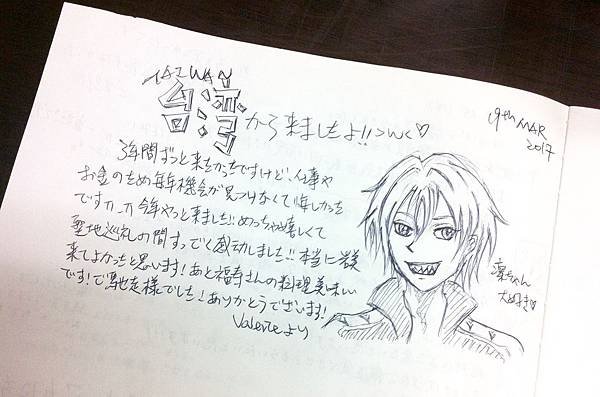 TAIWAN
台湾から来ましたよ!! >w<♡
9th MAR
2017
3年間ずっと来たかったですけど、仕事や
お金のため毎年機会が見つけなくて悔しかった
ですπ_π 今年やっと来ました!! めっちゃ嬉しくて
聖地巡礼の間すっごく感動しました!! 本当に岩美
来てよかったと思います! あと福寿さんの料理美味しい
です! ご馳走様でした! ありがとうございます!
Valenteより
凛ちゃん
大好き♡